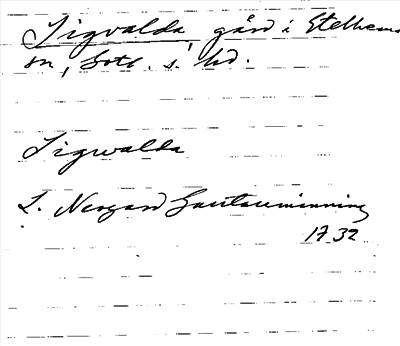 Sigvalda gård i Etelhems
sn, Gotl. s. hd.
Sigwalda
L. Nergard Gautauminning
1732